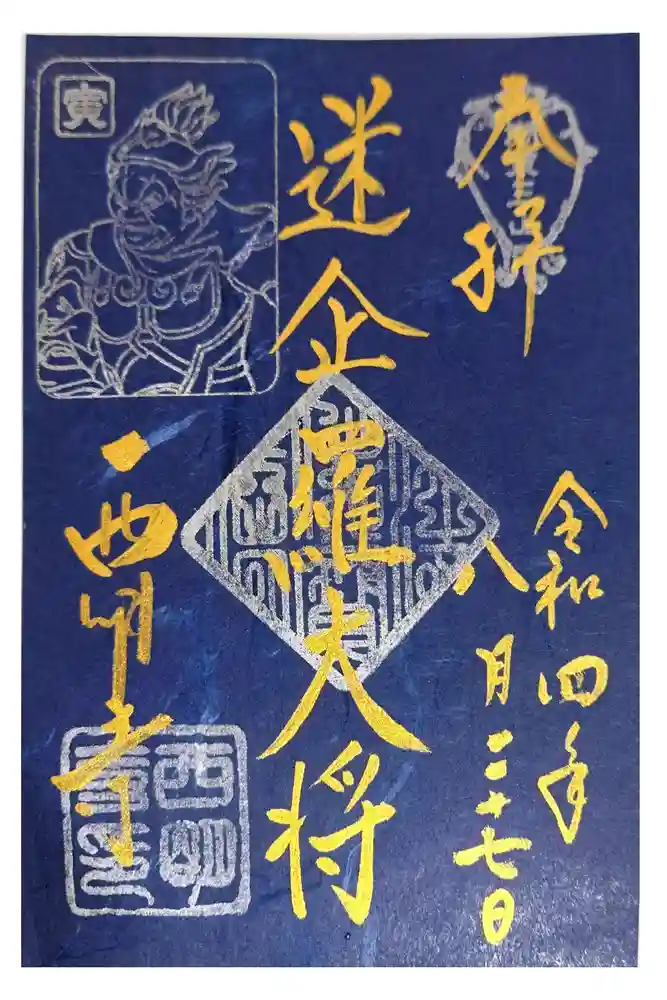 奉拝
令和四年
八月二十七日
迷企羅大将
寅
西明寺
西明